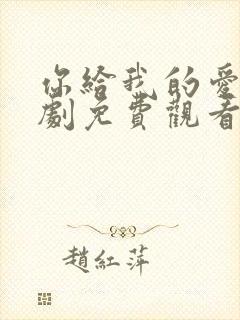 你給我的愛
劇免費觀看
趙紅萍